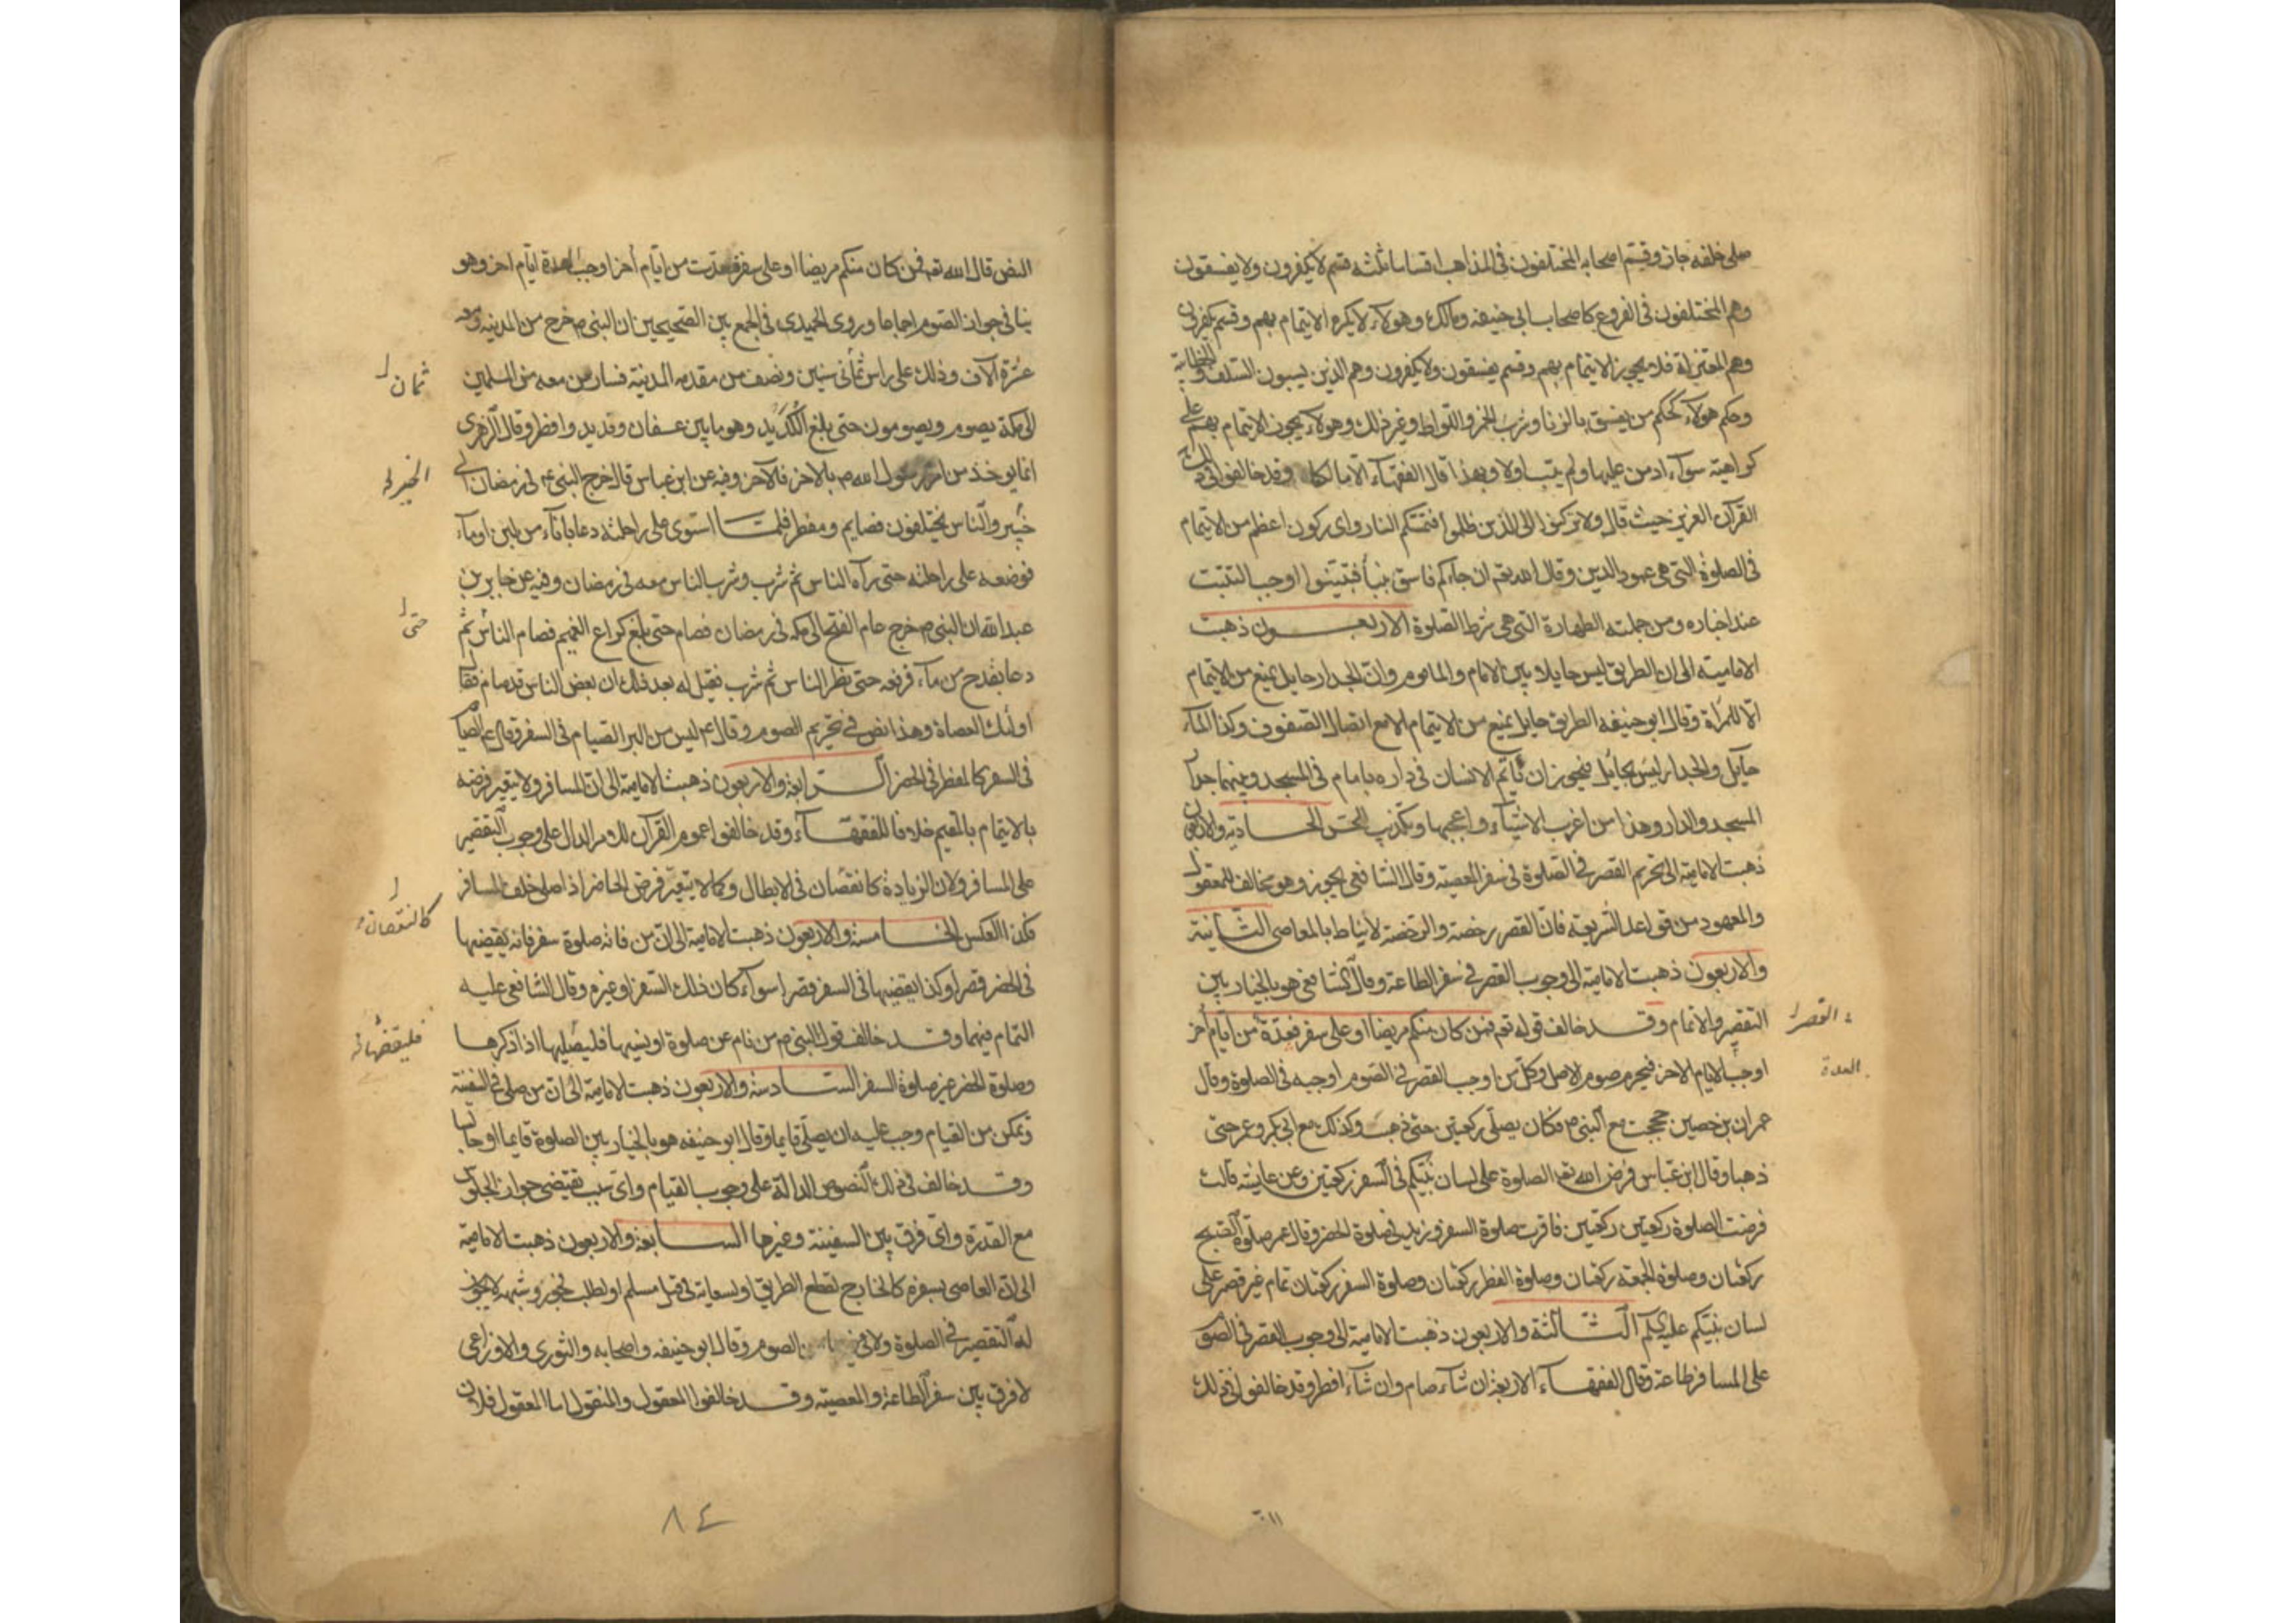 صلى خلفه جاز وقسم اصحابه المختلفون فى المذاهب اقساما ثلثه قسم لا يكفرون ولا يفسقون
وهم المختلفون فى الفروع كاصحاب ابى حنيفه ومالك وهولآء لا يكره الايتمام بهم وقسم يكفرون
وهم المعتزلة فلا يجوز الايتمام بهم وقسم يفسقون ولا يكفرون وهم الذين يسبون السلف والخطابية
وحكم هولآء حكم من يفسق بالزنا وشرب الخمر واللواط وغير ذلك وهولآء يجوز الايتمام بهم على
كراهية سوآء ادمن عليها ولم يتب اولا وبهذا قال الفقهآء الا مالكا وقد خالفوا فى ذلك
القرآن العزيز حيث قال ولا تركنوا الى الذين ظلموا فتمسكم النار واى ركون اعظم من الايتمام
فى الصلوة التى هى عمود الدين وقال الله تعم ان جاءكم فاسق بنبأ فتبينوا اوجب التثبت
عند اخباره ومن جملته الطهارة التى هى شرط الصلوة الاربعون ذهبت
الامامية الى ان الطريق ليس حايلا بين الامام والماموم وان الجدار حايل يمنع من الايتمام
الا للمرأة وقال ابو حنيفه الطريق حايل يمنع من الايتمام الا مع اتصال الصفوف وكذا المآء
حايل والجدار ليس بحايل فيجوز ان يأتم الانسان فى داره بامام فى المسجد وبينهما جدار
المسجد والدار وهذا من اغرب الاشيآء واعجبها ويكذبه الحس الحادية والاربعون
ذهبت الامامية الى تحريم القصر فى الصلوة فى سفر المعصية وقال الشافعى يجوز وهو مخالف للمعقول
والمعهود من قواعد الشريعة فان القصر رخصة والرخصة لا تناط بالمعاصى الثانية
والاربعون ذهبت الامامية الى وجوب القصر فى سفر الطاعة وقال الشافعى هو بالخيار بين
التقصير والاتمام وقد خالف قوله تعم فمن كان منكم مريضا او على سفر فعدة من ايام أخر
القصر
اوجب الايام الاخر فيحرم صوم الاصل وكل من اوجب القصر فى الصوم اوجبه فى الصلوة وقال
العدة
عمران بن حصين حججت مع النبى م فكان يصلى ركعتين حتى ذهب وكذلك مع ابى بكر وعمر حتى
ذهبا وقال ابن عباس فرض الله تعم الصلوة على لسان نبيكم فى السفر ركعتين وعن عايشه قالت
فرضت الصلوة ركعتين ركعتين فاقرت صلوة السفر وزيد فى صلوة الحضر وقال عمر صلوة الصبح
ركعتان وصلوة الجمعة ركعتان وصلوة الفطر ركعتان وصلوة السفر ركعتان تمام غير قصر على
لسان نبيكم عليه السلم الثالثة والاربعون ذهبت الامامية الى وجوب القصر فى الصوم
على المسافر طاعة وقال الفقهآء الاربعة ان شآء صام وان شآء افطر وقد خالفوا فى ذلك
النص قال الله تعم فمن كان منكم مريضا او على سفر فعدة من ايام أخر اوجب العدة ايام اخر وهو
ينافى جواز الصوم اجماعا وروى الحميدى فى الجمع بين الصحيحين ان النبى م خرج من المدينة ومعه
عشرة آلاف وذلك على راس ثمانى سنين ونصف من مقدمه المدينة فسار من معه من المسلمين
ثمان
الى مكة يصوم ويصومون حتى بلغ الكديد وهو ما بين عسفان وقديد وافطر وقال الزهرى
انما يوخذ من امر رسول الله م بالاخر فالآخر وفيه عن ابن عباس قال خرج النبى م فى رمضان الى
الخبر
خيبر والناس يختلفون فصايم ومفطر فلمتا استوى على راحلته دعا باناء من لبن او مآء
فوضعه على راحلته حتى رآه الناس ثم شرب وشرب الناس معه فى رمضان وفيه عن جابر بن
عبد الله ان النبى م خرج عام الفتح الى مكه فى رمضان فصام حتى بلغ كراع الغميم فصام الناس ثم
حتى
دعا بقدح من مآء فرفعه حتى نظر الناس ثم شرب فقيل له بعد ذلك ان بعض الناس قد صام فقال
اولئك العصاة وهذا نص فى تحريم الصوم وقال ع ليس من البر الصيام فى السفر وقال ع الصيام
فى السفر كالمفطر فى الحضر الرابعة والاربعون ذهبت الامامية الى ان المسافر ولا يتغير فرضه
بالايتمام بالمقيم خلافا للفقهآء وقد خالفوا عموم القرآن للامر الدال على وجوب التقصير
على المسافر ولان الزيادة كانقصان فى الابطال وكما لا يتغير فرض الحاضر اذا صلى خلف المسافر
كالنقصان
فكذا العكس الخامسة والاربعون ذهبت الامامية الى ان من فاته صلوة سفر فانه يقضيها
فى الحضر قصرا وكذا يقضيها فى السفر قصرا سوآء كان ذلك السفر او غيره وقال الشافعى عليه
التمام فيهما وقد خالف قول النبى م من نام عن صلوة او نسيها فليصليها اذا ذكرها
فليقضها
وصلوة الحضر غير صلوة السفر السادسة والاربعون ذهبت الامامية الى ان من صلى فى السفينة
وتمكن من القيام وجب عليه ان يصلى قايما وقال ابو حنيفه هو بالخيار بين الصلوة قايما او جالسا
وقد خالف فى ذلك النصوص الدالة على وجوب القيام واى سبب يقتضى جواز الجلوس
مع القدرة واى فرق بين السفينة وغيرها السابعة والاربعون ذهبت الامامية
الى ان العاصى بسفره كالخارج لقطع الطريق او لسعاية فى قتل مسلم او لطلب فجور وشبهه لا يجوز
له التقصير فى الصلوة ولا فى الصوم وقال ابو حنيفه واصحابه والثورى والاوزاعى
لا فرق بين سفر الطاعة والمعصية وقد خالفوا المعقول والمنقول اما المعقول فلان
٨٤